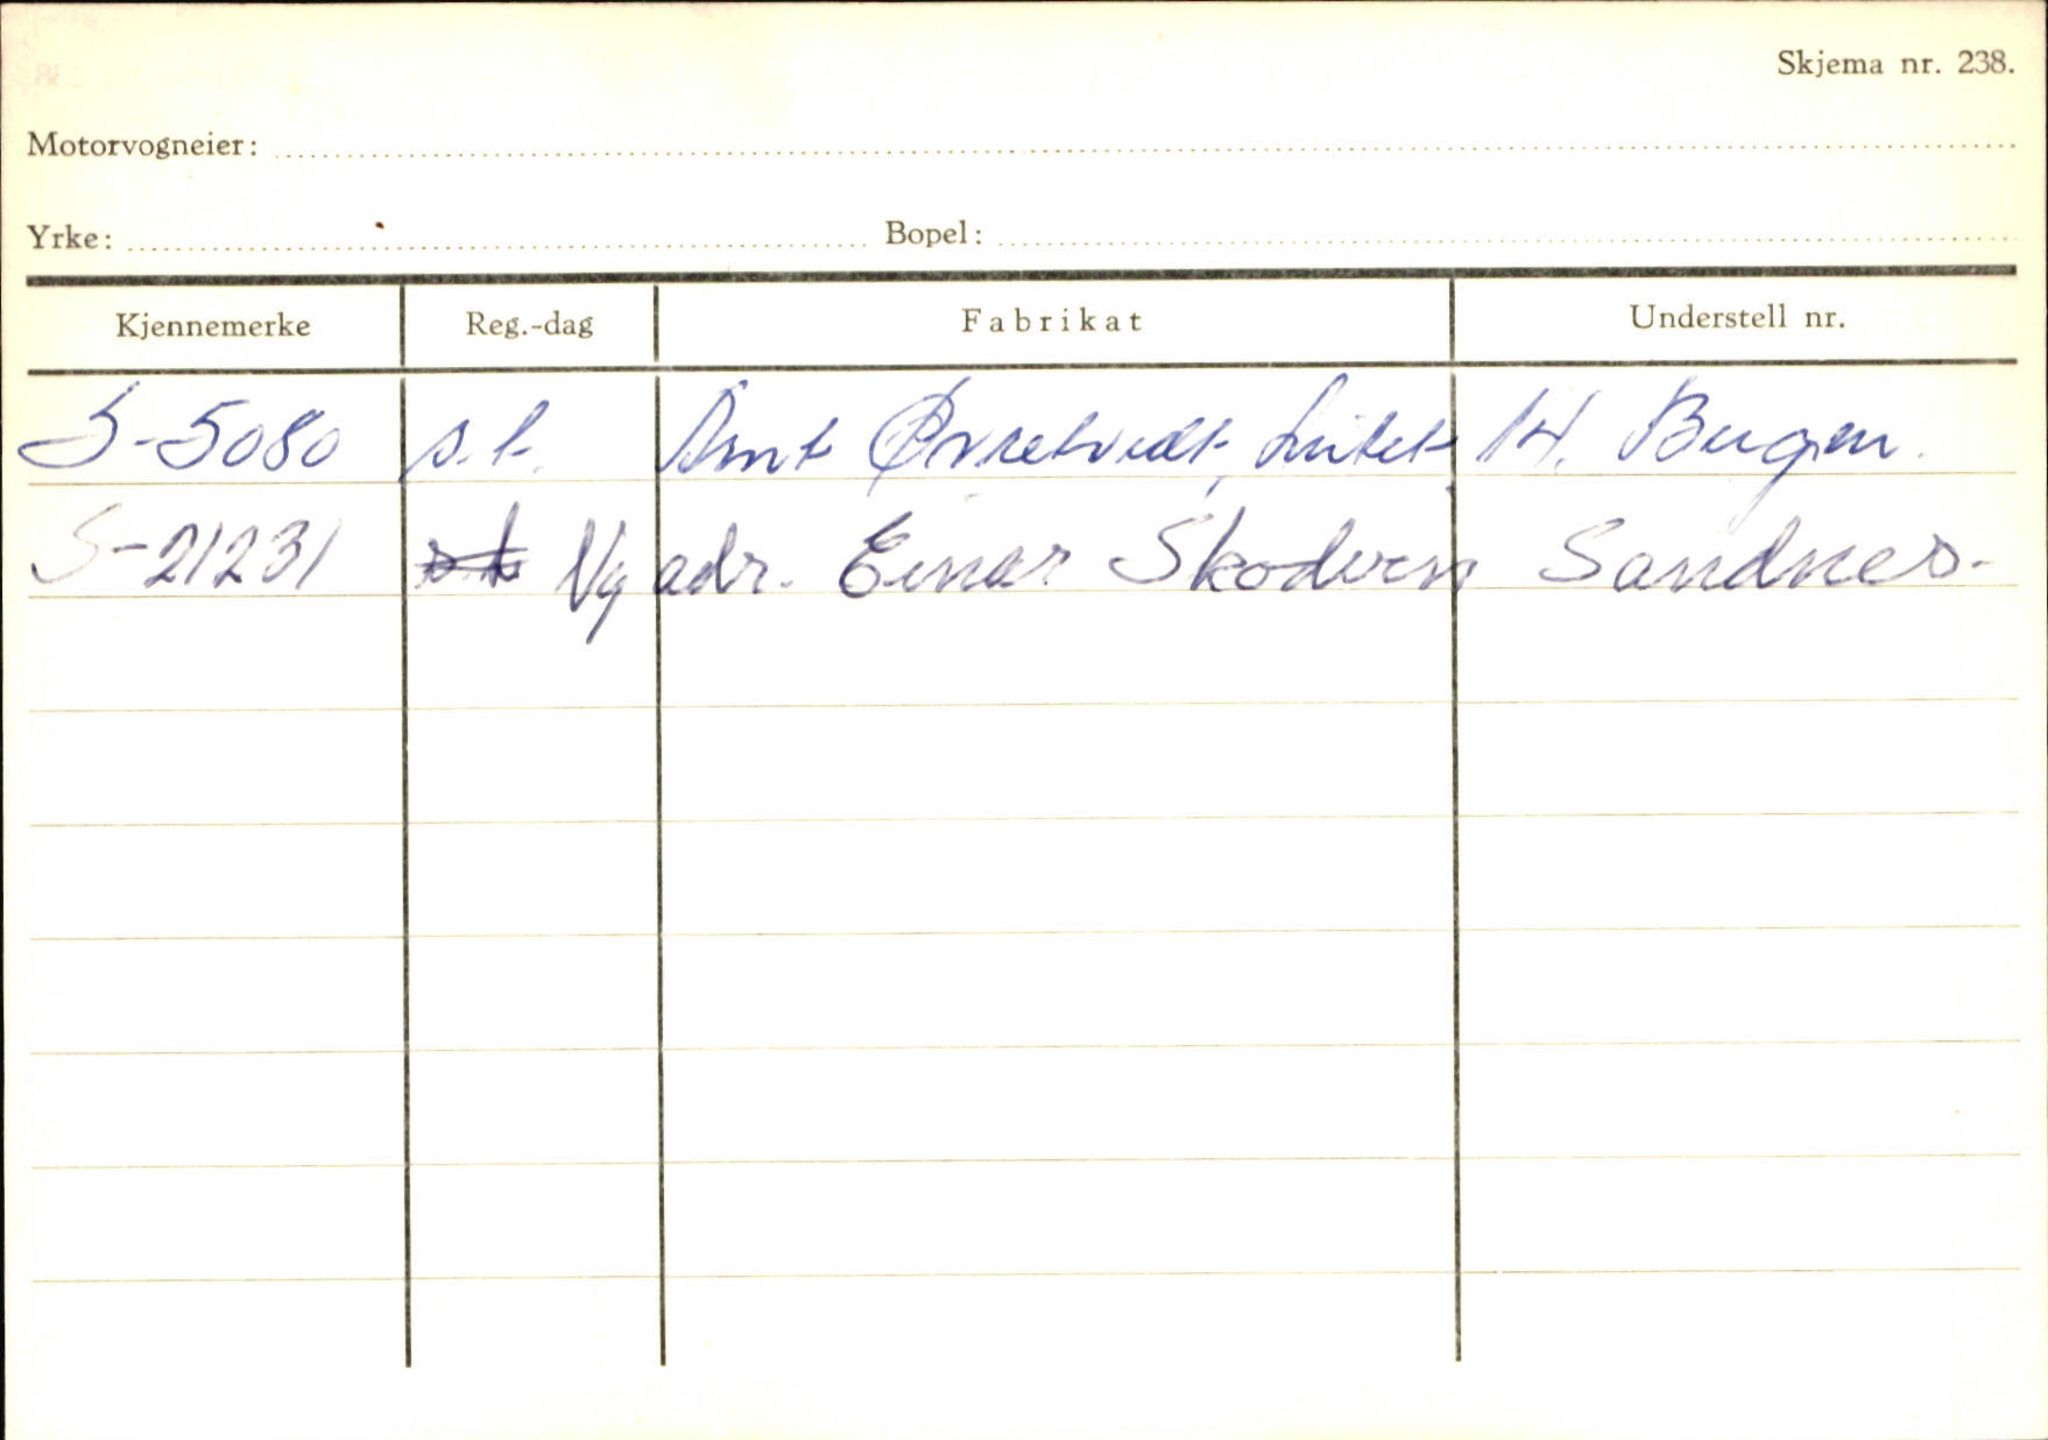 Skjema nr. 238.
Motorvogneier:
Yrke: Bopel:
Kjennemerke Reg.-dag Fabrikat Understell nr.
S-5080 s.t. Arnt Øvretvedt, 14. Bergen.
S-21231 Ny adr. Einar Skodven Sandnes.